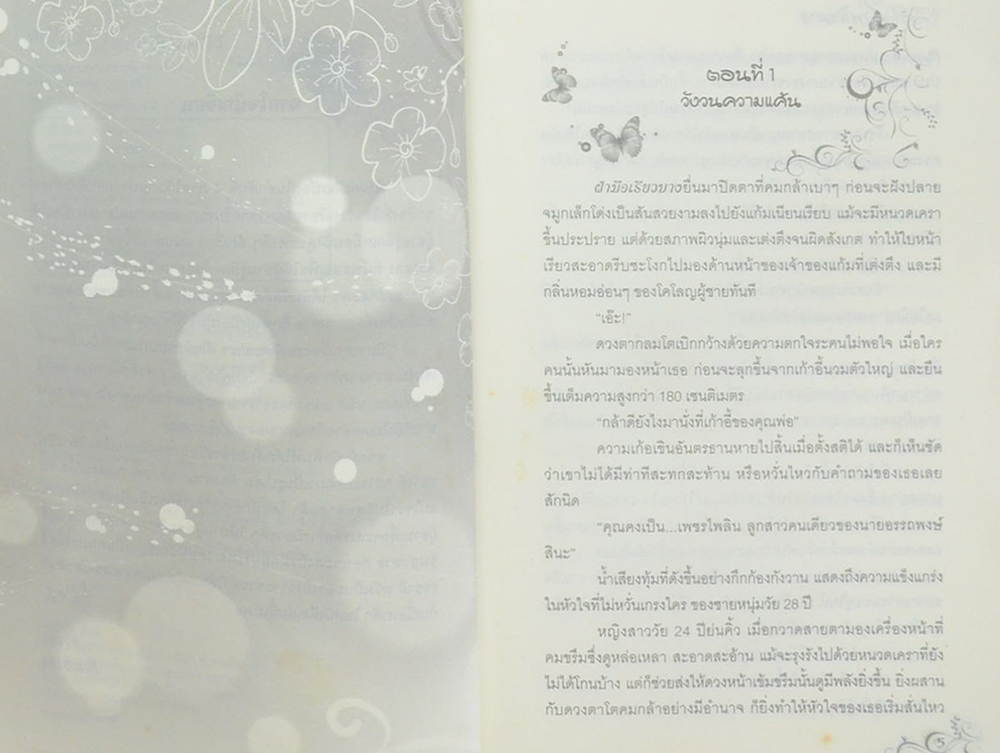 ตอนที่ 1
วังวนความแค้น
ฝ่ามือเรียวบางยื่นมาปิดตาที่คมกล้าเบาๆ ก่อนจะฝังปลาย
จมูกเล็กโด่งเป็นสันสวยงามลงไปยังแก้มเนียนเรียบ แม้จะมีหนวดเครา
ขึ้นประปราย แต่ด้วยสภาพผิวนุ่มและเต่งตึงจนผิดสังเกต ทำให้ใบหน้า
เรียวสะอาดรีบชะโงกไปมองด้านหน้าของเจ้าของแก้มที่เต่งตึง และมี
กลิ่นหอมอ่อนๆ ของโคโลญผู้ชายทันที
“เอ๊ะ!”
ดวงตากลมโตเบิกกว้างด้วยความตกใจระคนไม่พอใจ เมื่อใคร
คนนั้นหันมามองหน้าเธอ ก่อนจะลุกขึ้นจากเก้าอี้นวมตัวใหญ่ และยืน
ขึ้นเต็มความสูงกว่า 180 เซนติเมตร
“กล้าดียังไงมานั่งที่เก้าอี้ของคุณพ่อ”
ความเก้อเขินอันตรธานหายไปสิ้นเมื่อตั้งสติได้ และก็เห็นชัด
ว่าเขาไม่ได้มีท่าทีสะทกสะท้าน หรือหวั่นไหวกับคำถามของเธอเลย
สักนิด
“คุณคงเป็น...เพชรไพลิน ลูกสาวคนเดียวของนายอรรถพงษ์
สินะ”
น้ำเสียงทุ้มที่ดังขึ้นอย่างกึกก้องกังวาน แสดงถึงความแข็งแกร่ง
ในหัวใจที่ไม่หวั่นเกรงใคร ของชายหนุ่มวัย 28 ปี
หญิงสาววัย 24 ปีย่นคิ้ว เมื่อกวาดสายตามองเครื่องหน้าที่
คมขรึมซึ่งดูหล่อเหลา สะอาดสะอ้าน แม้จะรุงรังไปด้วยหนวดเคราที่ยัง
ไม่ได้โกนบ้าง แต่ก็ช่วยส่งให้ดวงหน้าเข้มขรึมนั้นดูมีพลังยิ่งขึ้น ยิ่งผสาน
กับดวงตาโตคมกล้าอย่างมีอำนาจ ก็ยิ่งทำให้หัวใจของเธอเริ่มสั่นไหว
5